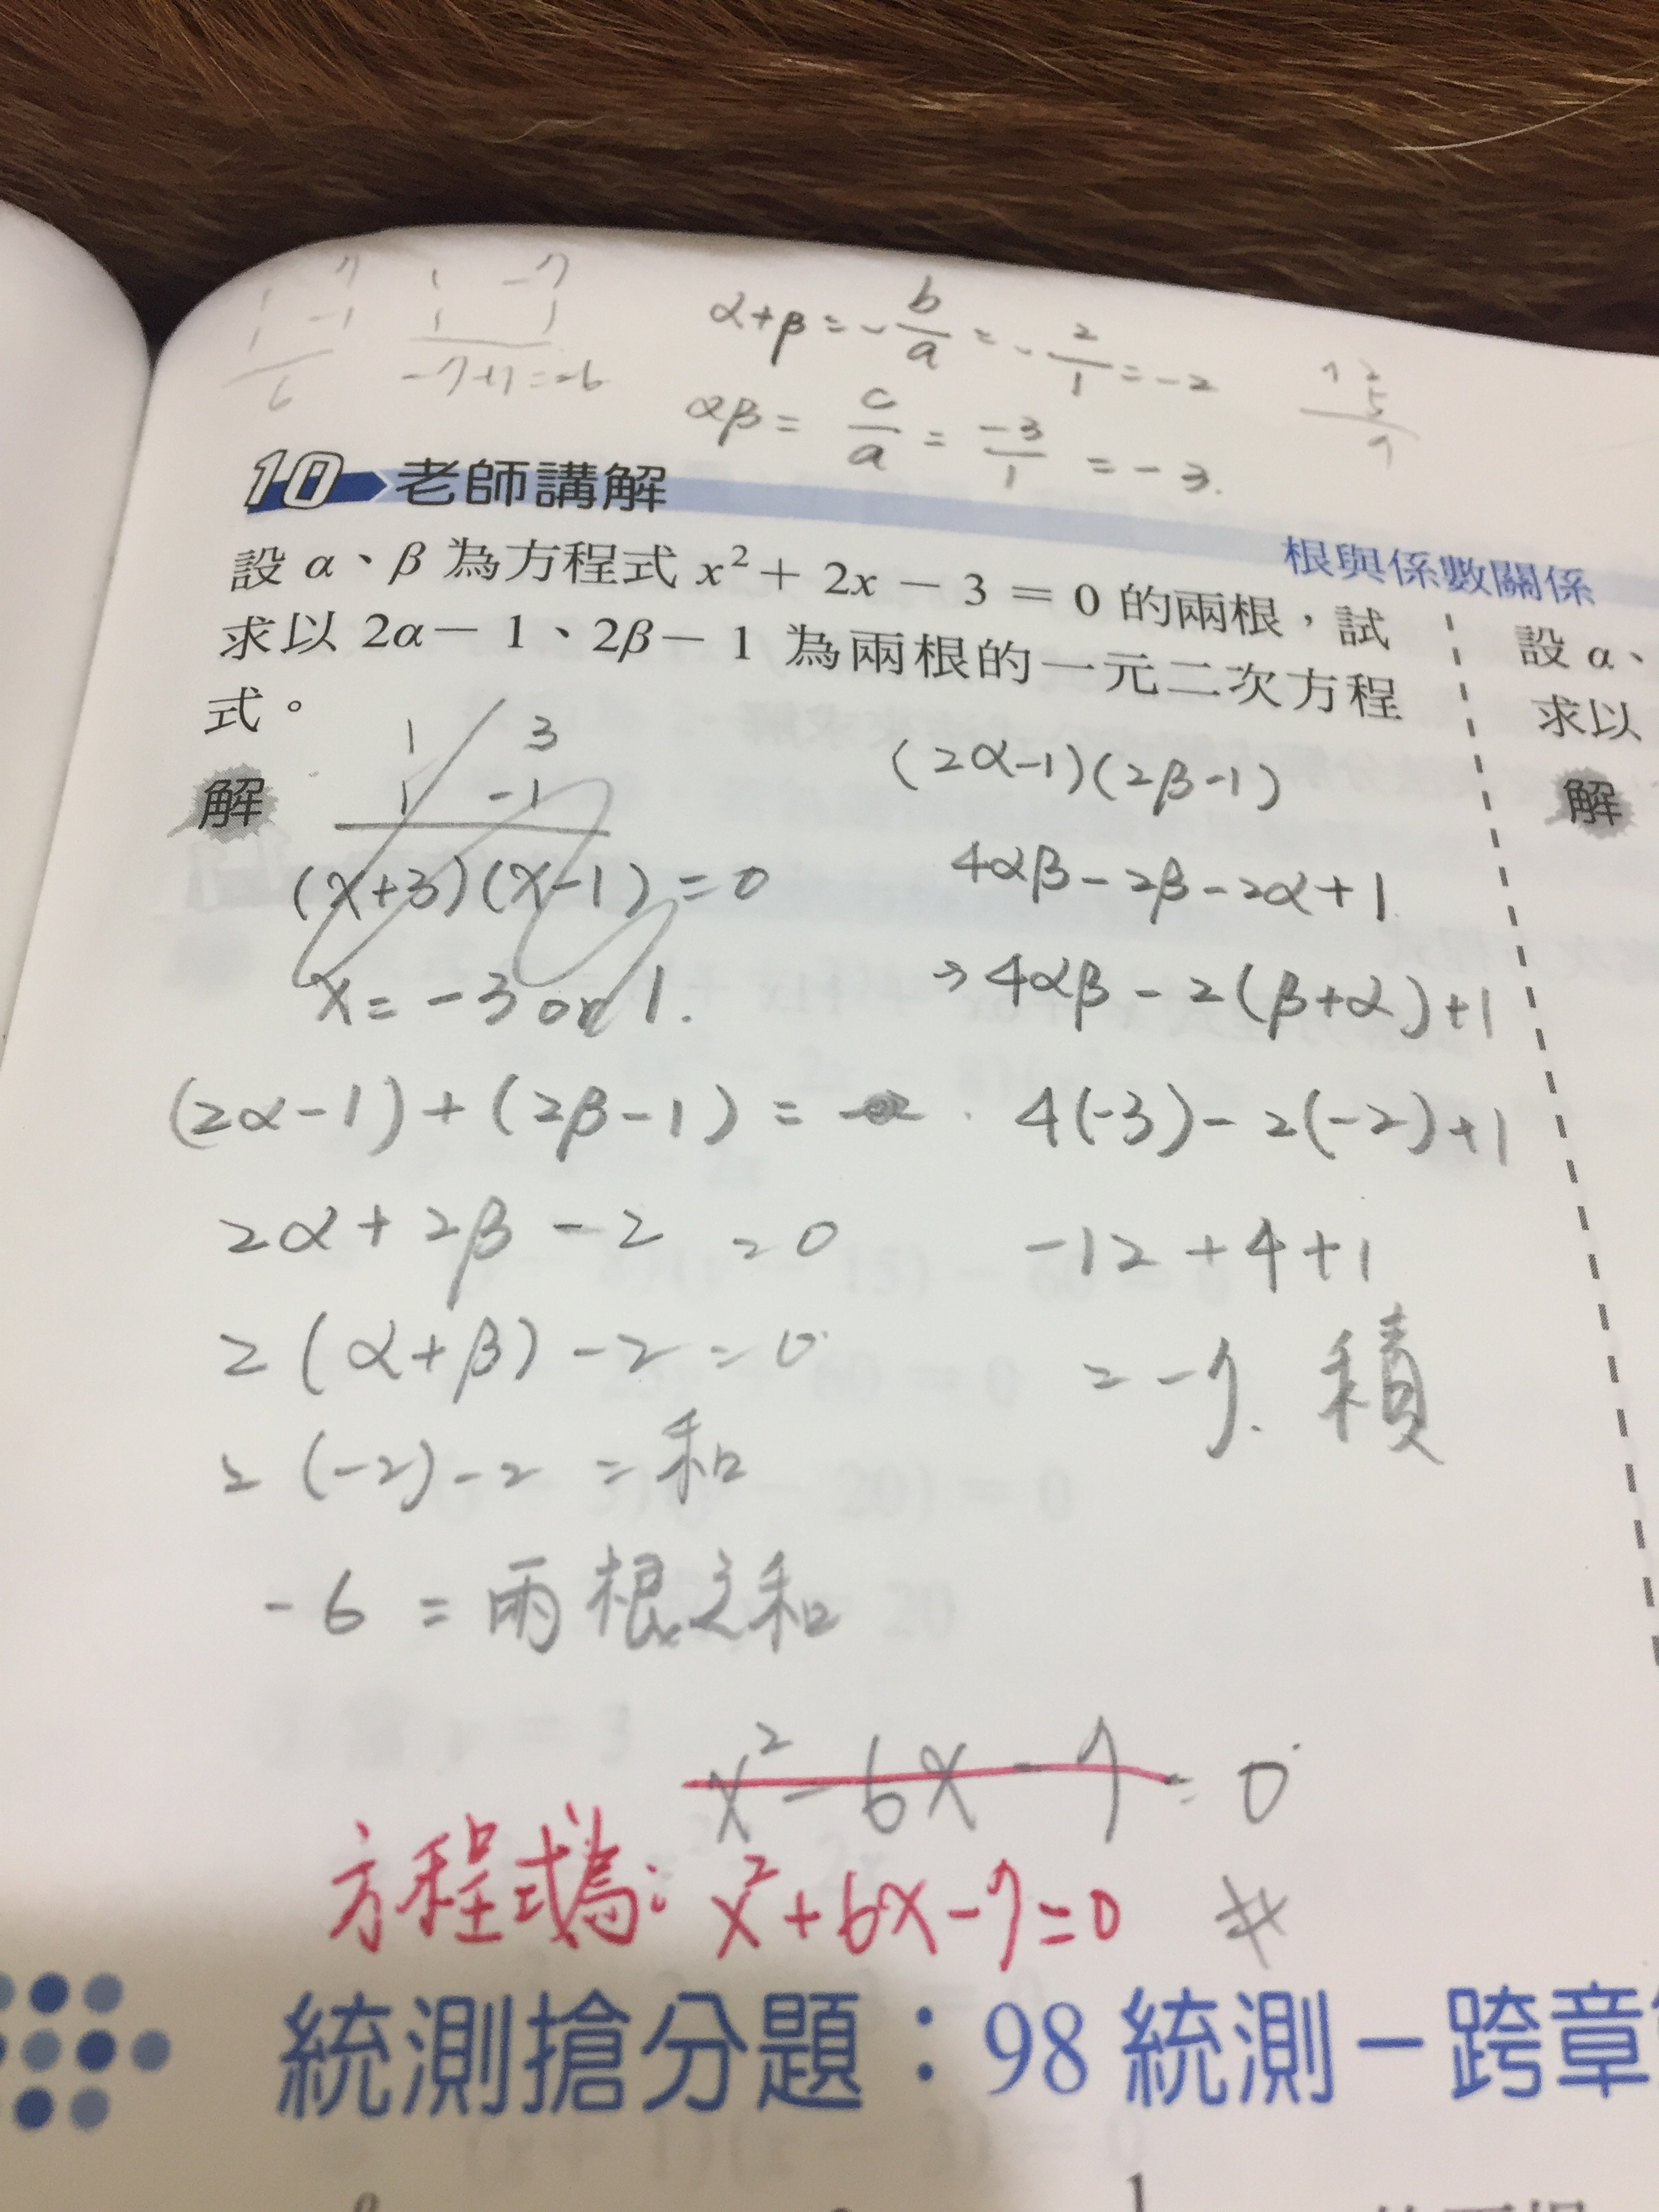 1 7
1 -1
6
1 -7
1 1
-7+1=-6
α+β=-b/a=-2/1=-2
αβ=c/a=-3/1=-3.
10 老師講解
根與係數關係
設 α、β 為方程式 x²+ 2x － 3 = 0 的兩根，試
求以 2α－1、2β－1 為兩根的一元二次方程
式。
解
1 3
1 -1
(x+3)(x-1)=0
x=-3 or 1.
(2α-1)+(2β-1)=
2α+2β-2=0
2(α+β)-2=0
2(-2)-2=和
-6=兩根之和
(2α-1)(2β-1)
4αβ-2β-2α+1
→4αβ-2(β+α)+1
4(-3)-2(-2)+1
-12+4+1
=-7. 積
x²-6x-7=0
方程式為: x²+6x-7=0 #
設 α、
求以
解
統測搶分題：98 統測－跨章